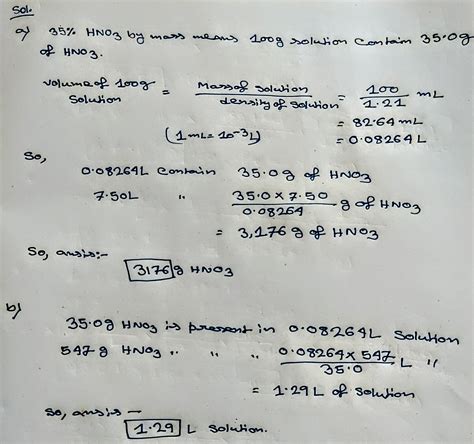 Sol.
a) 35% HNO3 by mass means 100g solution contain 35.0g
of HNO3.
Volume of 100g solution = Mass of solution / density of solution = 100 / 1.21 mL
= 82.64 mL
(1mL = 10⁻³L) = 0.08264L
So,
0.08264L contain 35.0g of HNO3
7.50L " 35.0 x 7.50 / 0.08264 g of HNO3
= 3,176 g of HNO3
So, ans is:-
3176 g HNO3
b)
35.0g HNO3 is present in 0.08264L Solution
547g HNO3 " " " 0.08264 x 547 / 35.0 L "
= 1.29L of solution
So, ans is -
1.29 L solution.